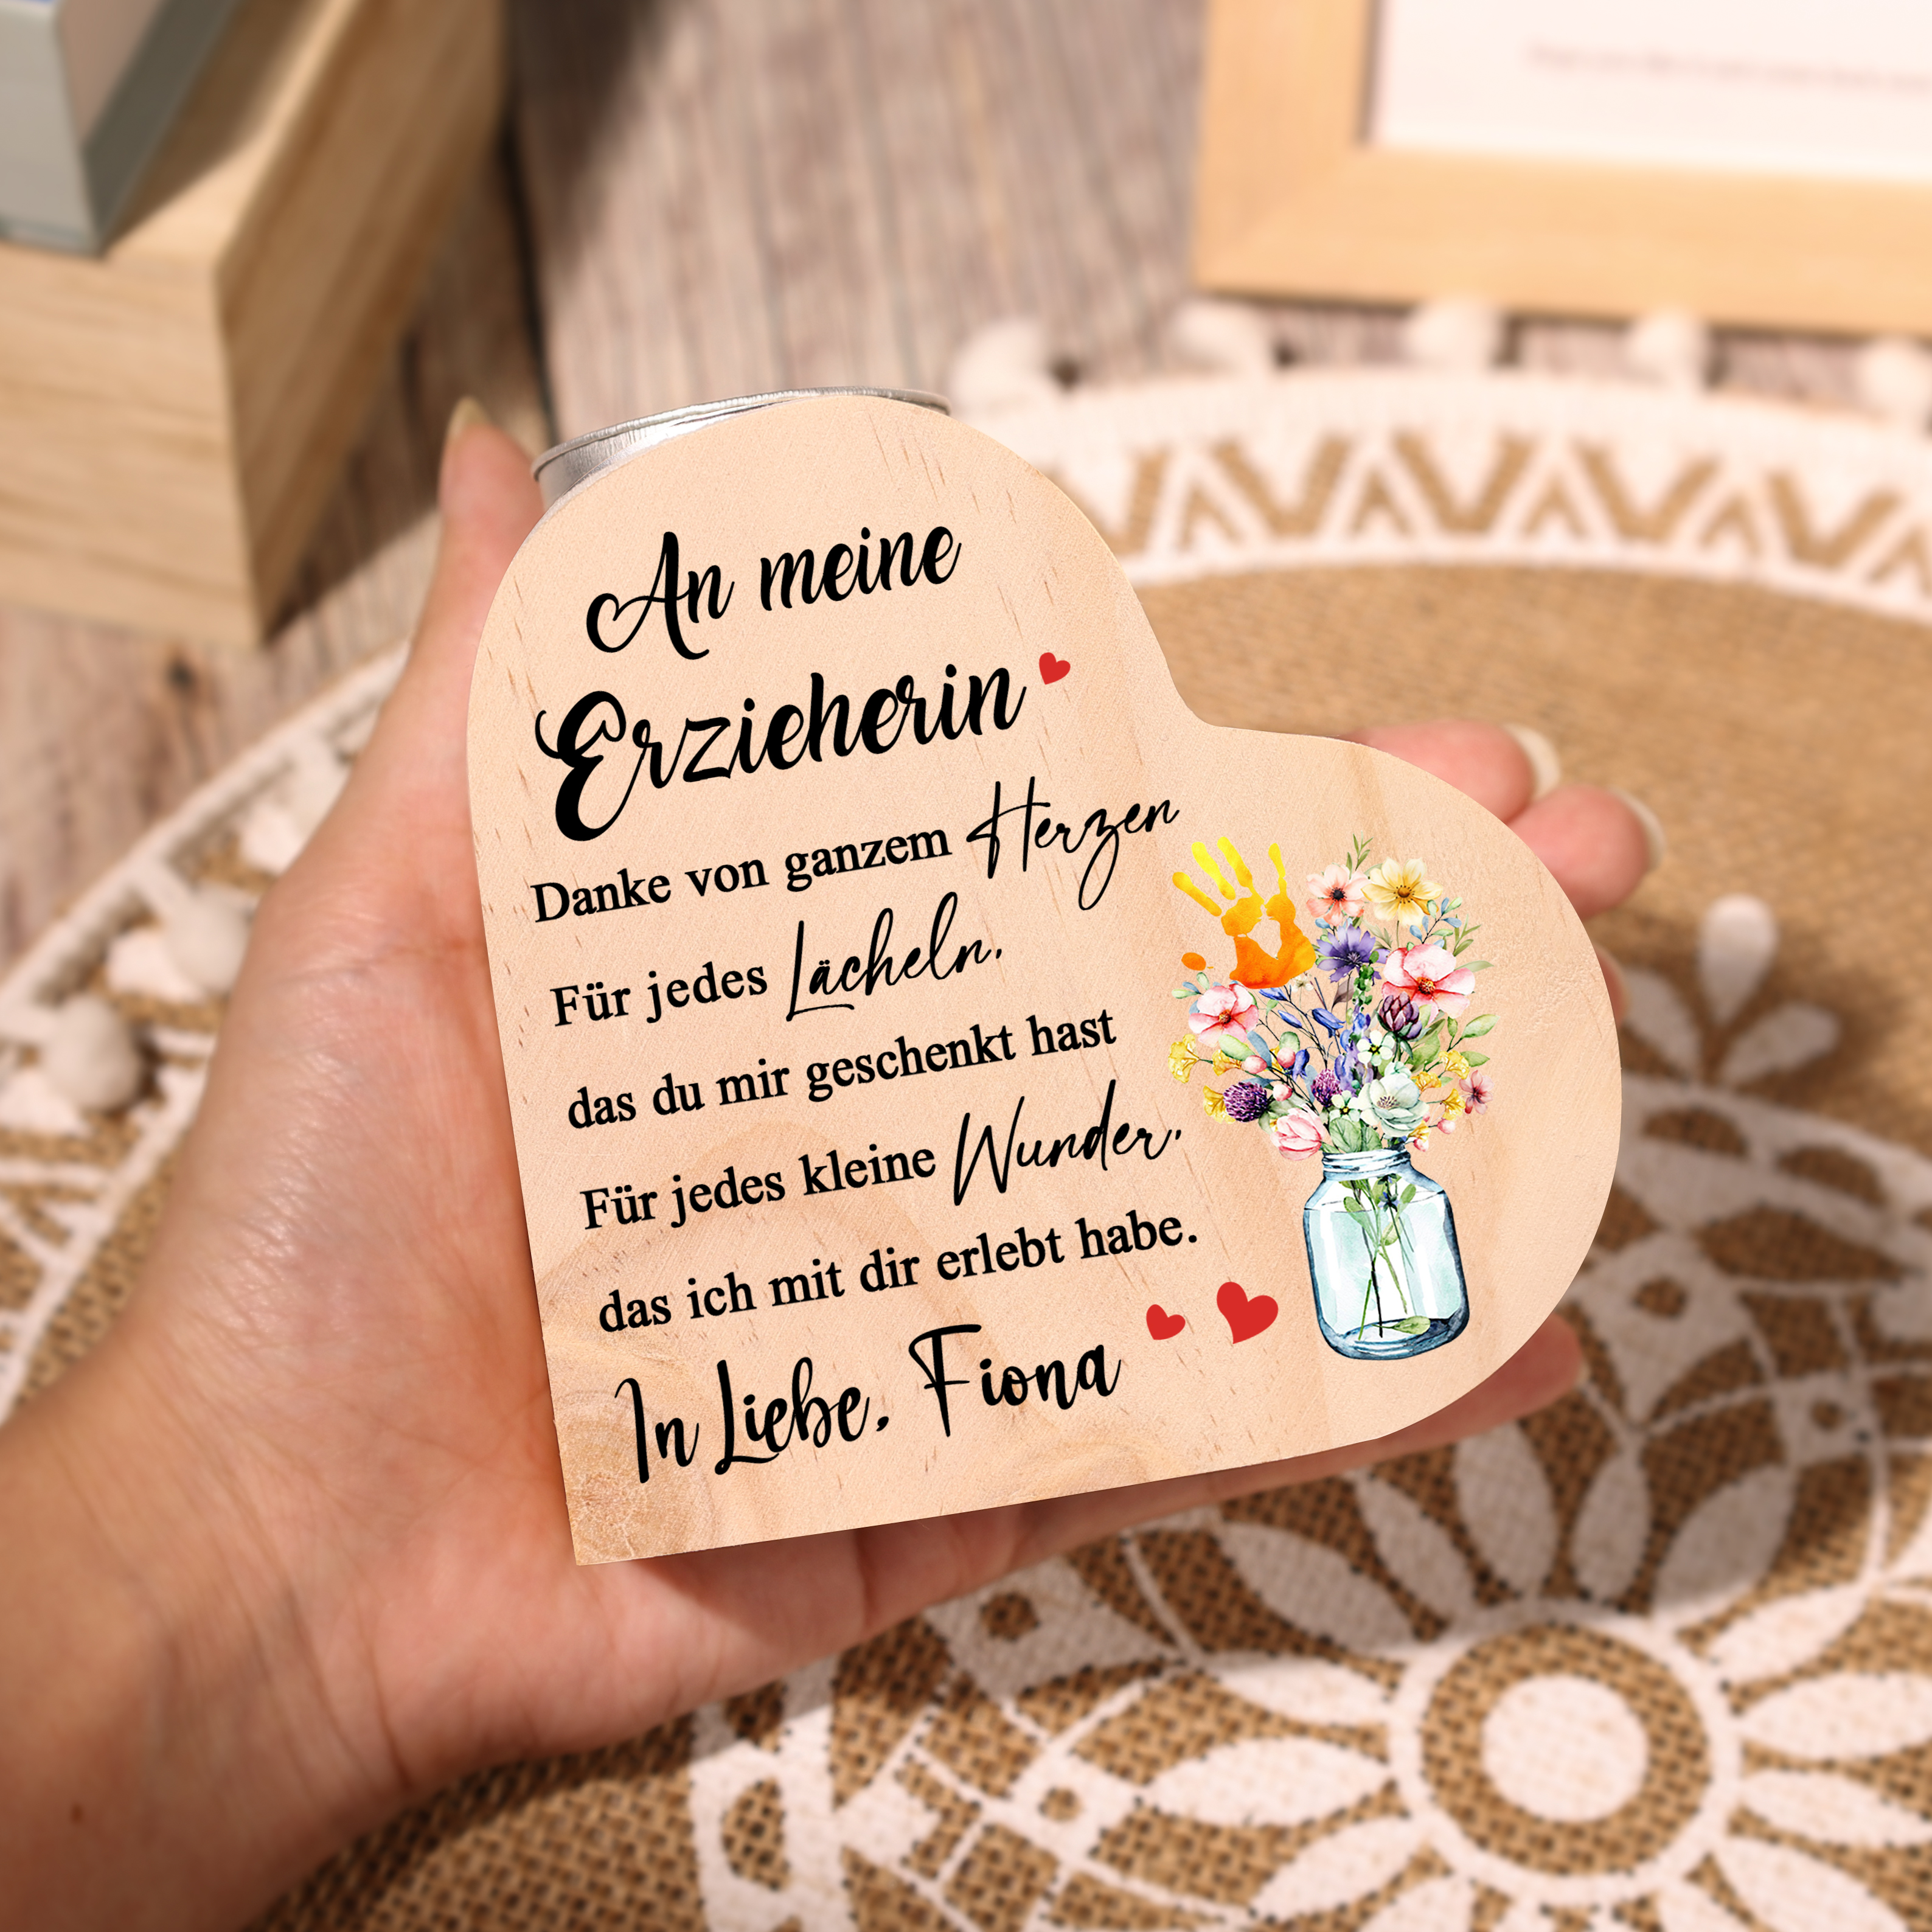 An meine
Erzieherin
Danke von ganzem Herzen
Für jedes Lächeln,
das du mir geschenkt hast
Für jedes kleine Wunder,
das ich mit dir erlebt habe.
In Liebe, Fiona